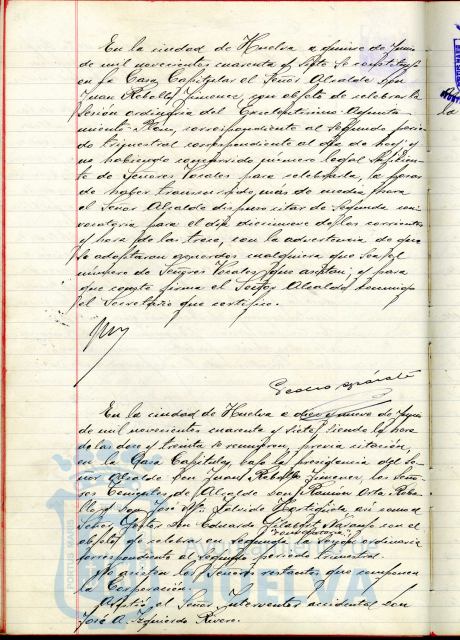 En la ciudad de Huelva a quince de Junio
de mil novecientos cuarenta y siete se constituyó
en la Casa Capitular el Señor Alcalde Don
Juan Rebollo Jimenez, con objeto de celebrar la
Sesión ordinaria del Excelentísimo Ayunta-
miento Pleno, correspondiente al segundo perio-
do trimestral correspondiente al día de hoy; y
no habiendo concurrido número legal suficien-
te de Señores Vocales para celebrarla, a pesar
de haber transcurrido más de media hora
el Señor Alcalde dispuso citar de segunda con-
vocatoria para el día diecinueve de los corrientes
y hora de las trece, con la advertencia de que
se adoptaran acuerdos cualquiera que sea el
número de Señores Vocales que asistan; y para
que conste firma el Señor Alcalde conmigo
el Secretario que certifico.
En la ciudad de Huelva a diecinueve de Junio
de mil novecientos cuarenta y siete, siendo la hora
de las doce y treinta se reunieron, previa citación,
en la Casa Capitular, bajo la presidencia del Se-
ñor Alcalde Don Juan Rebollo Jimenez, los Seño-
res Tenientes de Alcalde Don Ramón Orta Rebo-
llo y Don José Mª, así como el
Señor Gestor Don Eduardo Naranjo con el
objeto de celebrar en segunda convocatoria la sesión ordinaria
correspondiente al segundo periodo trimestral.
No asisten los Señores restantes que componen
la Corporación.
Asiste el Señor Interventor accidental Don
José A. Izquierdo Rivero.
PORTUS MARIS
Ayuntamiento de
HUELVA